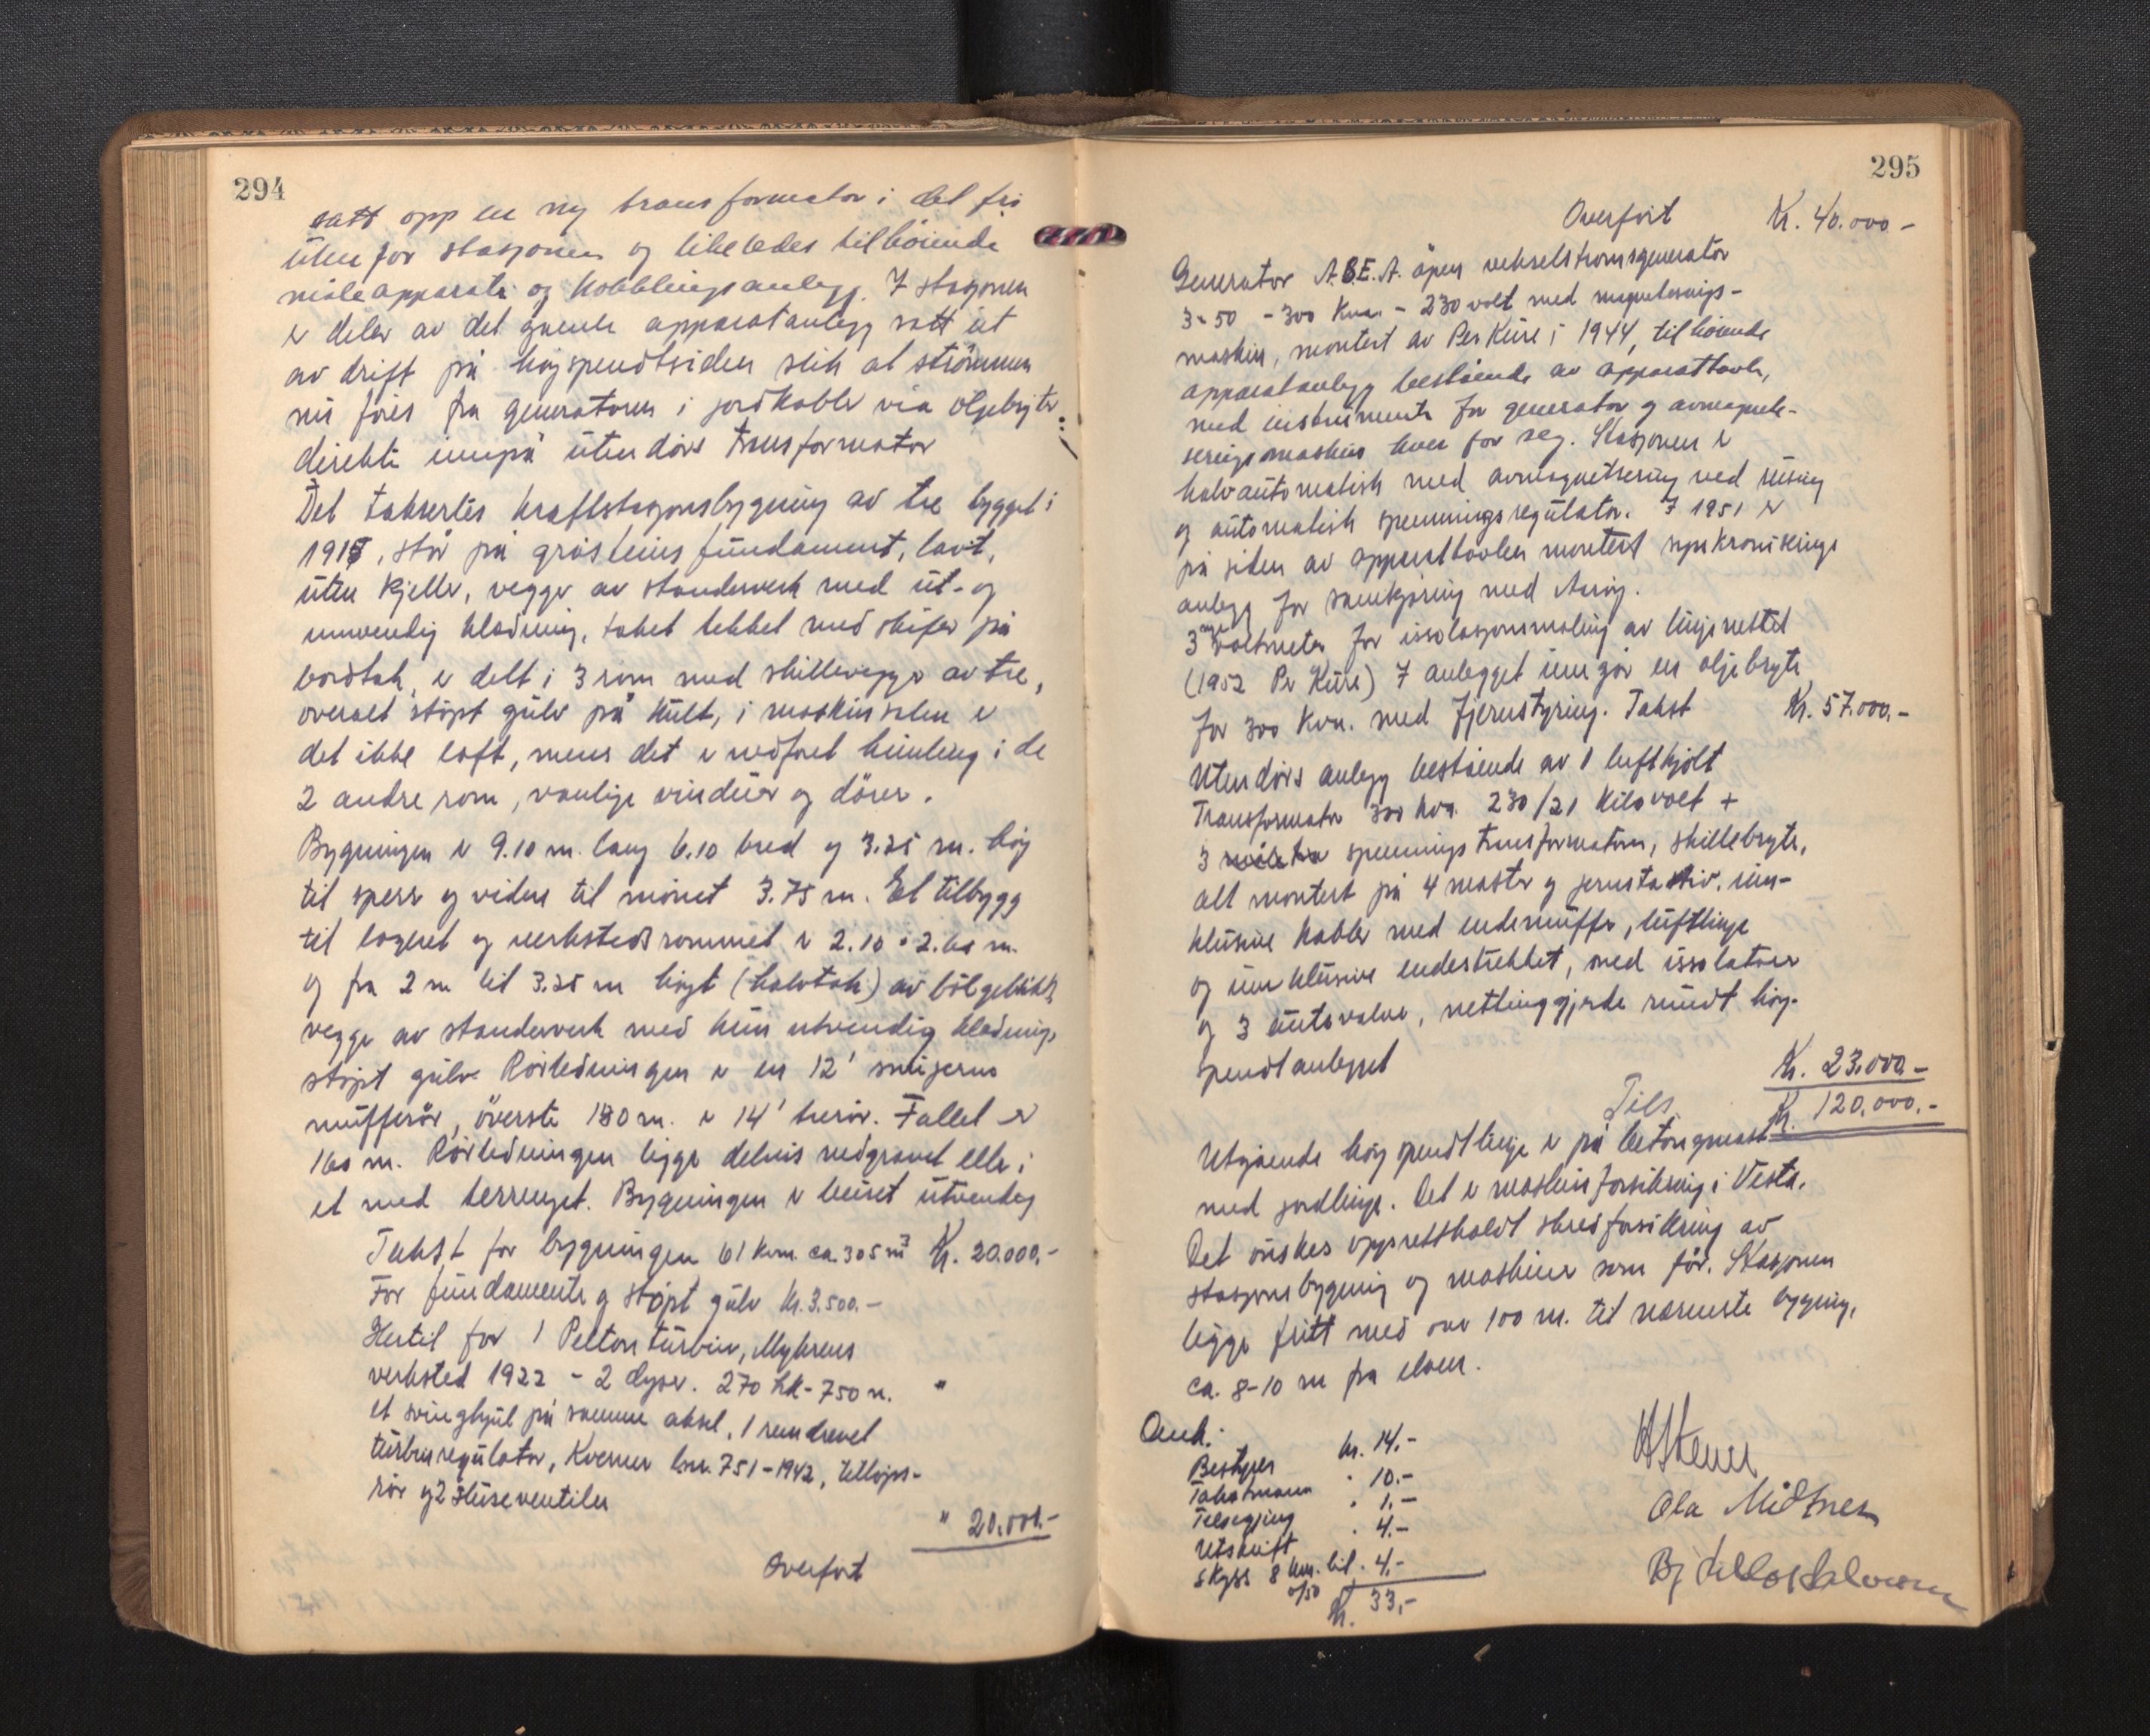 294
satt opp en ny transformator i det fri
uten for stasjonen og likeledes tilhørende
måleapparater og koblingsanlegg. I stasjonen
er deler av det gamle apparatanlegg satt ut
av drift på højspendtsiden slik at strømmen
nu føres fra generatoren i jordkabler via oljebryter
direkte innpå utendørs transformator
Det taksertes kraftstasjonsbygning av tre bygget i
1917, står på gråsteins fundament, lavt,
uten kjeller, vegger av standerverk med ut- og
innvendig kledning, taket tekket med skifer på
bordtak, er delt i 3 rom med skillevegger av tre,
overalt støpt gulv på kult, i maskinsalen er
det ikke loft, mens det er nedforet himling i de
2 andre rom, vanlige vinduer og dører.
Bygningen er 9.10 m. lang 6.10 bred og 3.25 m. høy
til sperr og videre til mønet 3.75 m. Et tilbygg
til lageret og verkstedsrommet er 2.10 · 2.60 m.
og fra 2 m til 3.25 m høyt (halvtak) av bølgeblikk
vegger av standerverk med kun utvendig kledning,
støpt gulv. Rørledningen er en 12' smijerns
mufferør, øverste 180 m. er 14' trerør. Fallet er
160 m. Rørledningen ligger delvis nedgravet eller i
et med terrenget. Bygningen er beiset utvendig
Takst for bygningen 61 kvm. ca. 305 m³ Kr. 20.000.-
For fundamenter og støpt gulv kr. 3.500.-
Hertil for 1 Pelton turbin, Myhrens
verksted 1922 - 2 dyser. 270 hk - 750 n. "
et svinghjul på samme aksel, 1 remdrevet
turbinregulator, Kværner bnr. 751-1942, tilløps-
rør og 2 sluseventiler
" 20.000.-
Overført
295
Overført Kr. 40.000.-
Generator A.S.E.A. åpen vekselstrømsgenerator
3-50 - 300 Kva. - 230 volt med magnetiserings-
maskin, montert av Per Kure i 1944, tilhørende
apparatanlegg bestående av apparattavle,
med instrumenter for generator og avmagneti-
seringsmaskin hver for seg. Stasjonen er
halvautomatisk med avmagnetisering ved rusing
og automatisk spenningsregulator. I 1951 er
på siden av apparattavlen montert synkroniserings
anlegg for samkjøring med Aurøy.
3 nye voltmeter for issolasjonsmåling av linjenettet
(1952 Per Kure) I anlegget inngår en oljebryter
for 300 Kva. med fjernstyring. Takst Kr. 57.000.-
Utendørs anlegg bestående av 1 luftkjølt
Transformator 300 kva. 230/21 Kilovolt +
3 spenningstransformatorer, skillebryter,
alt montert på 4 master og jernstativ. inn-
klusive kabler med endemuffer, luftlinje
og innklusive endestrekket, med issolatorer
og 3 autovalve, nettinggjerde rundt høy-
spendtanlegget
Kr. 23.000.-
Tils. Kr. 120.000.-
Utgående høyspendtlinje er på betongmast
med jordlinje. Det er maskinforsikring i Vesta.
Det ønskes opprettholdt skredforsikring av
stasjonsbygning og maskiner som før. Stasjonen
ligger fritt med over 100 m. til nærmeste bygning,
ca. 8-10 m fra elven.
Omk:
Bestyrer kr. 14.-
Takstmann " 10.-
Tilsigjing " 1.-
Utskrift " 4.-
Skyss 8 km. bil " 4.-
0/50
Kr. 33,-
Ola Midtnes